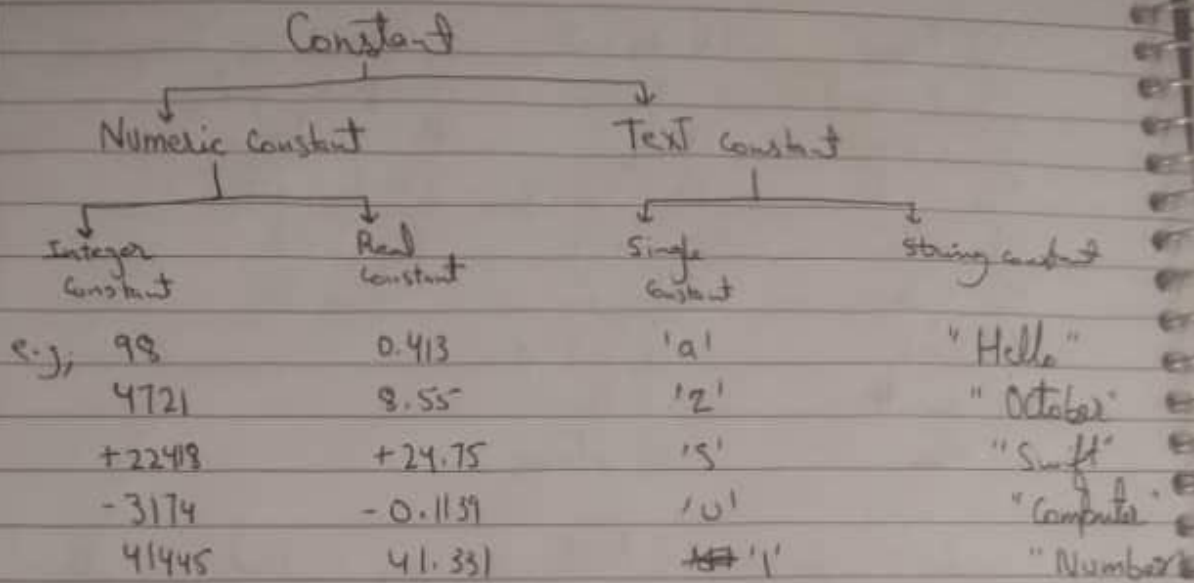 Constant
Numeric Constant Text constant
Integer Real Single String constant
Constant Constant Constant
e.g, 98 0.413 'a' "Hello"
4721 8.55 'Z' "October"
+22418 +24.75 'S' "Swift"
-3174 -0.1139 'U' "Computer"
41445 41.331 '1' "Number